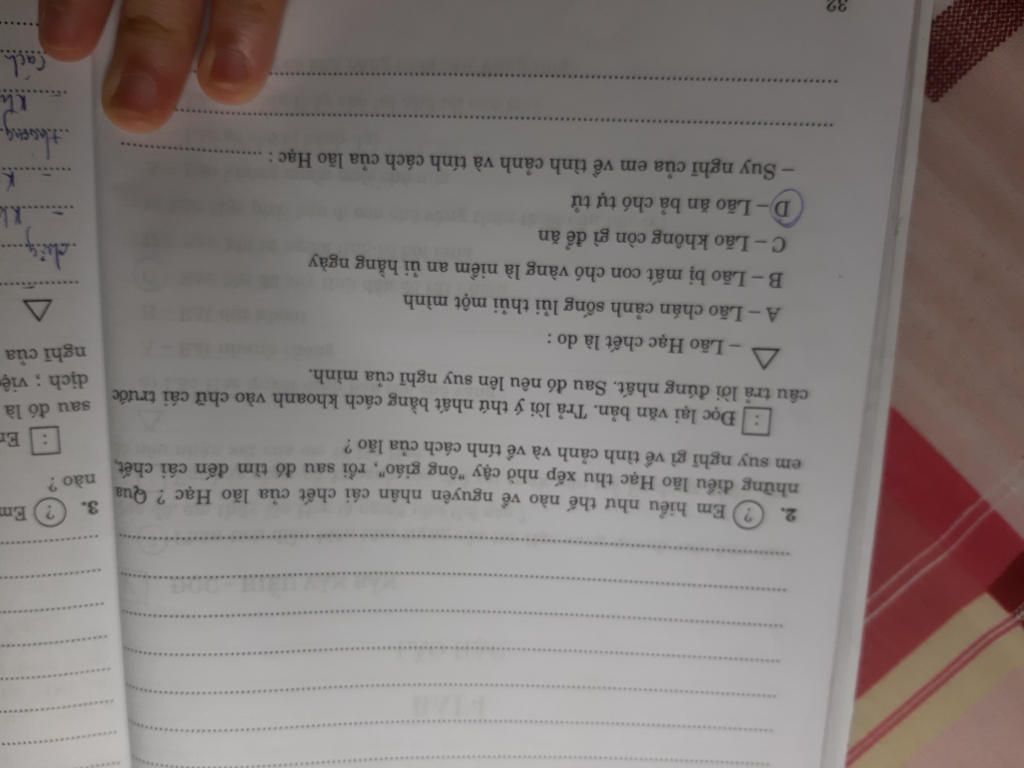 2. ? Em hiểu như thế nào về nguyên nhân cái chết của lão Hạc ? Qua
những điều lão Hạc thu xếp nhờ cậy "ông giáo", rồi sau đó tìm đến cái chết,
em suy nghĩ gì về tình cảnh và về tính cách của lão ?
: Đọc lại văn bản. Trả lời ý thứ nhất bằng cách khoanh vào chữ cái trước
câu trả lời đúng nhất. Sau đó nêu lên suy nghĩ của mình.
– Lão Hạc chết là do :
A – Lão chán cảnh sống lủi thủi một mình
B – Lão bị mất con chó vàng là niềm an ủi hằng ngày
C – Lão không còn gì để ăn
D – Lão ăn bả chó tự tử
– Suy nghĩ của em về tình cảnh và tính cách của lão Hạc :
32
3. ? Em
nào ?
:
sau đó là
dịch ; việ
nghĩ của